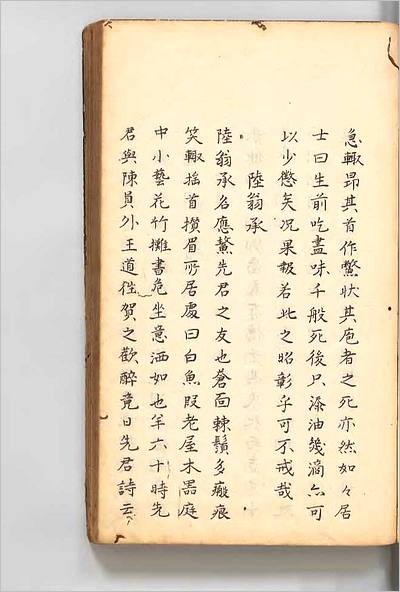 急輙昂其首作鱉狀其庖者之死亦然如々居
士曰生前吃盡味千般死後只添油幾滴亦可
以少懲矣况果報若此之昭彰乎可不戒哉
陸翁承
陸翁承名應鰲先君之友也蒼面棘鬚多瘢痕
笑輙摇首攅眉所居處曰白魚段老屋木噐庭
中小藝花竹攤書危坐意洒如也年六十時先
君與陳員外王道徃賀之歡醉竟日先君詩云